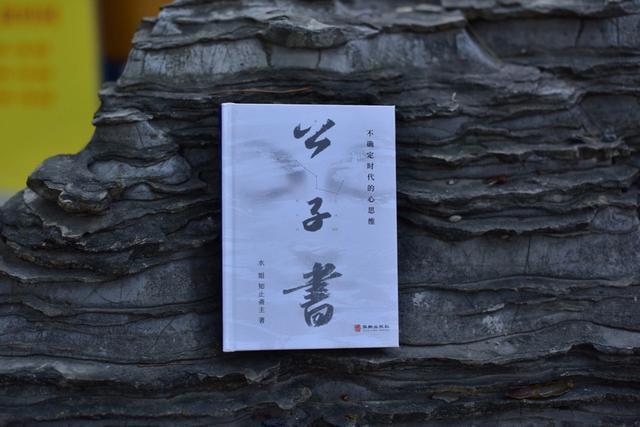 公子書
不确定时代的心思维
水 姐 知止斋主 著
出版社